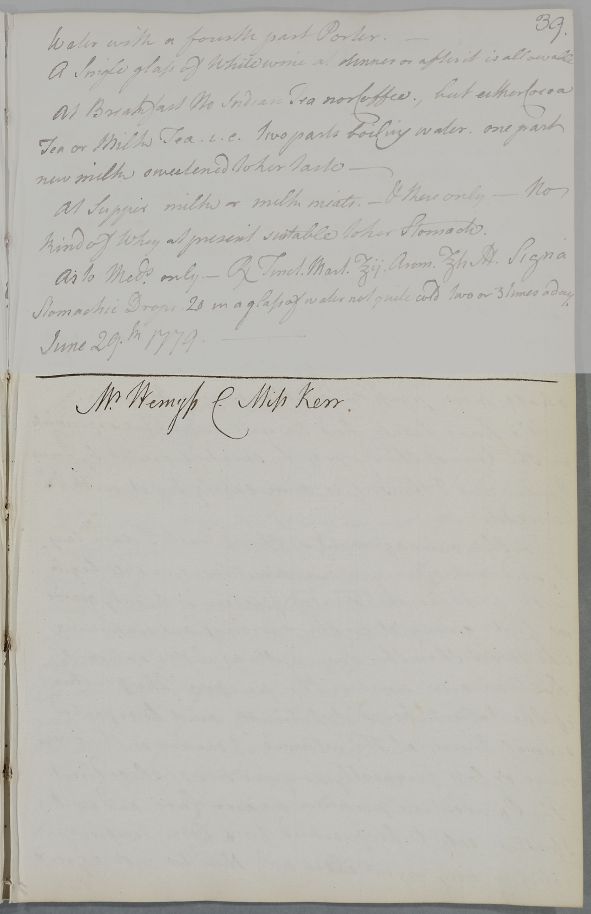 39.
Water with a fourth part Porter. —
A Single glass of White wine at dinner or after it is allowable
At Breakfast No Indian Tea nor Coffee, but either Cocoa
Tea or Milk Tea. i.e. two parts boiling water. one part
new milk sweetened to her taste —
At Supper milk or milk meats. — & these only — No
kind of Whey at present suitable to her Stomach.
As to Meds. only — ℞ Tinct. Mart. ʒij. Arom. Signa
Stomachic Drops. 20 in a glass of water not quite cold two or 3 times a day.
June 29.th 1779.
Mr. Wemyss C. Miss Kerr.